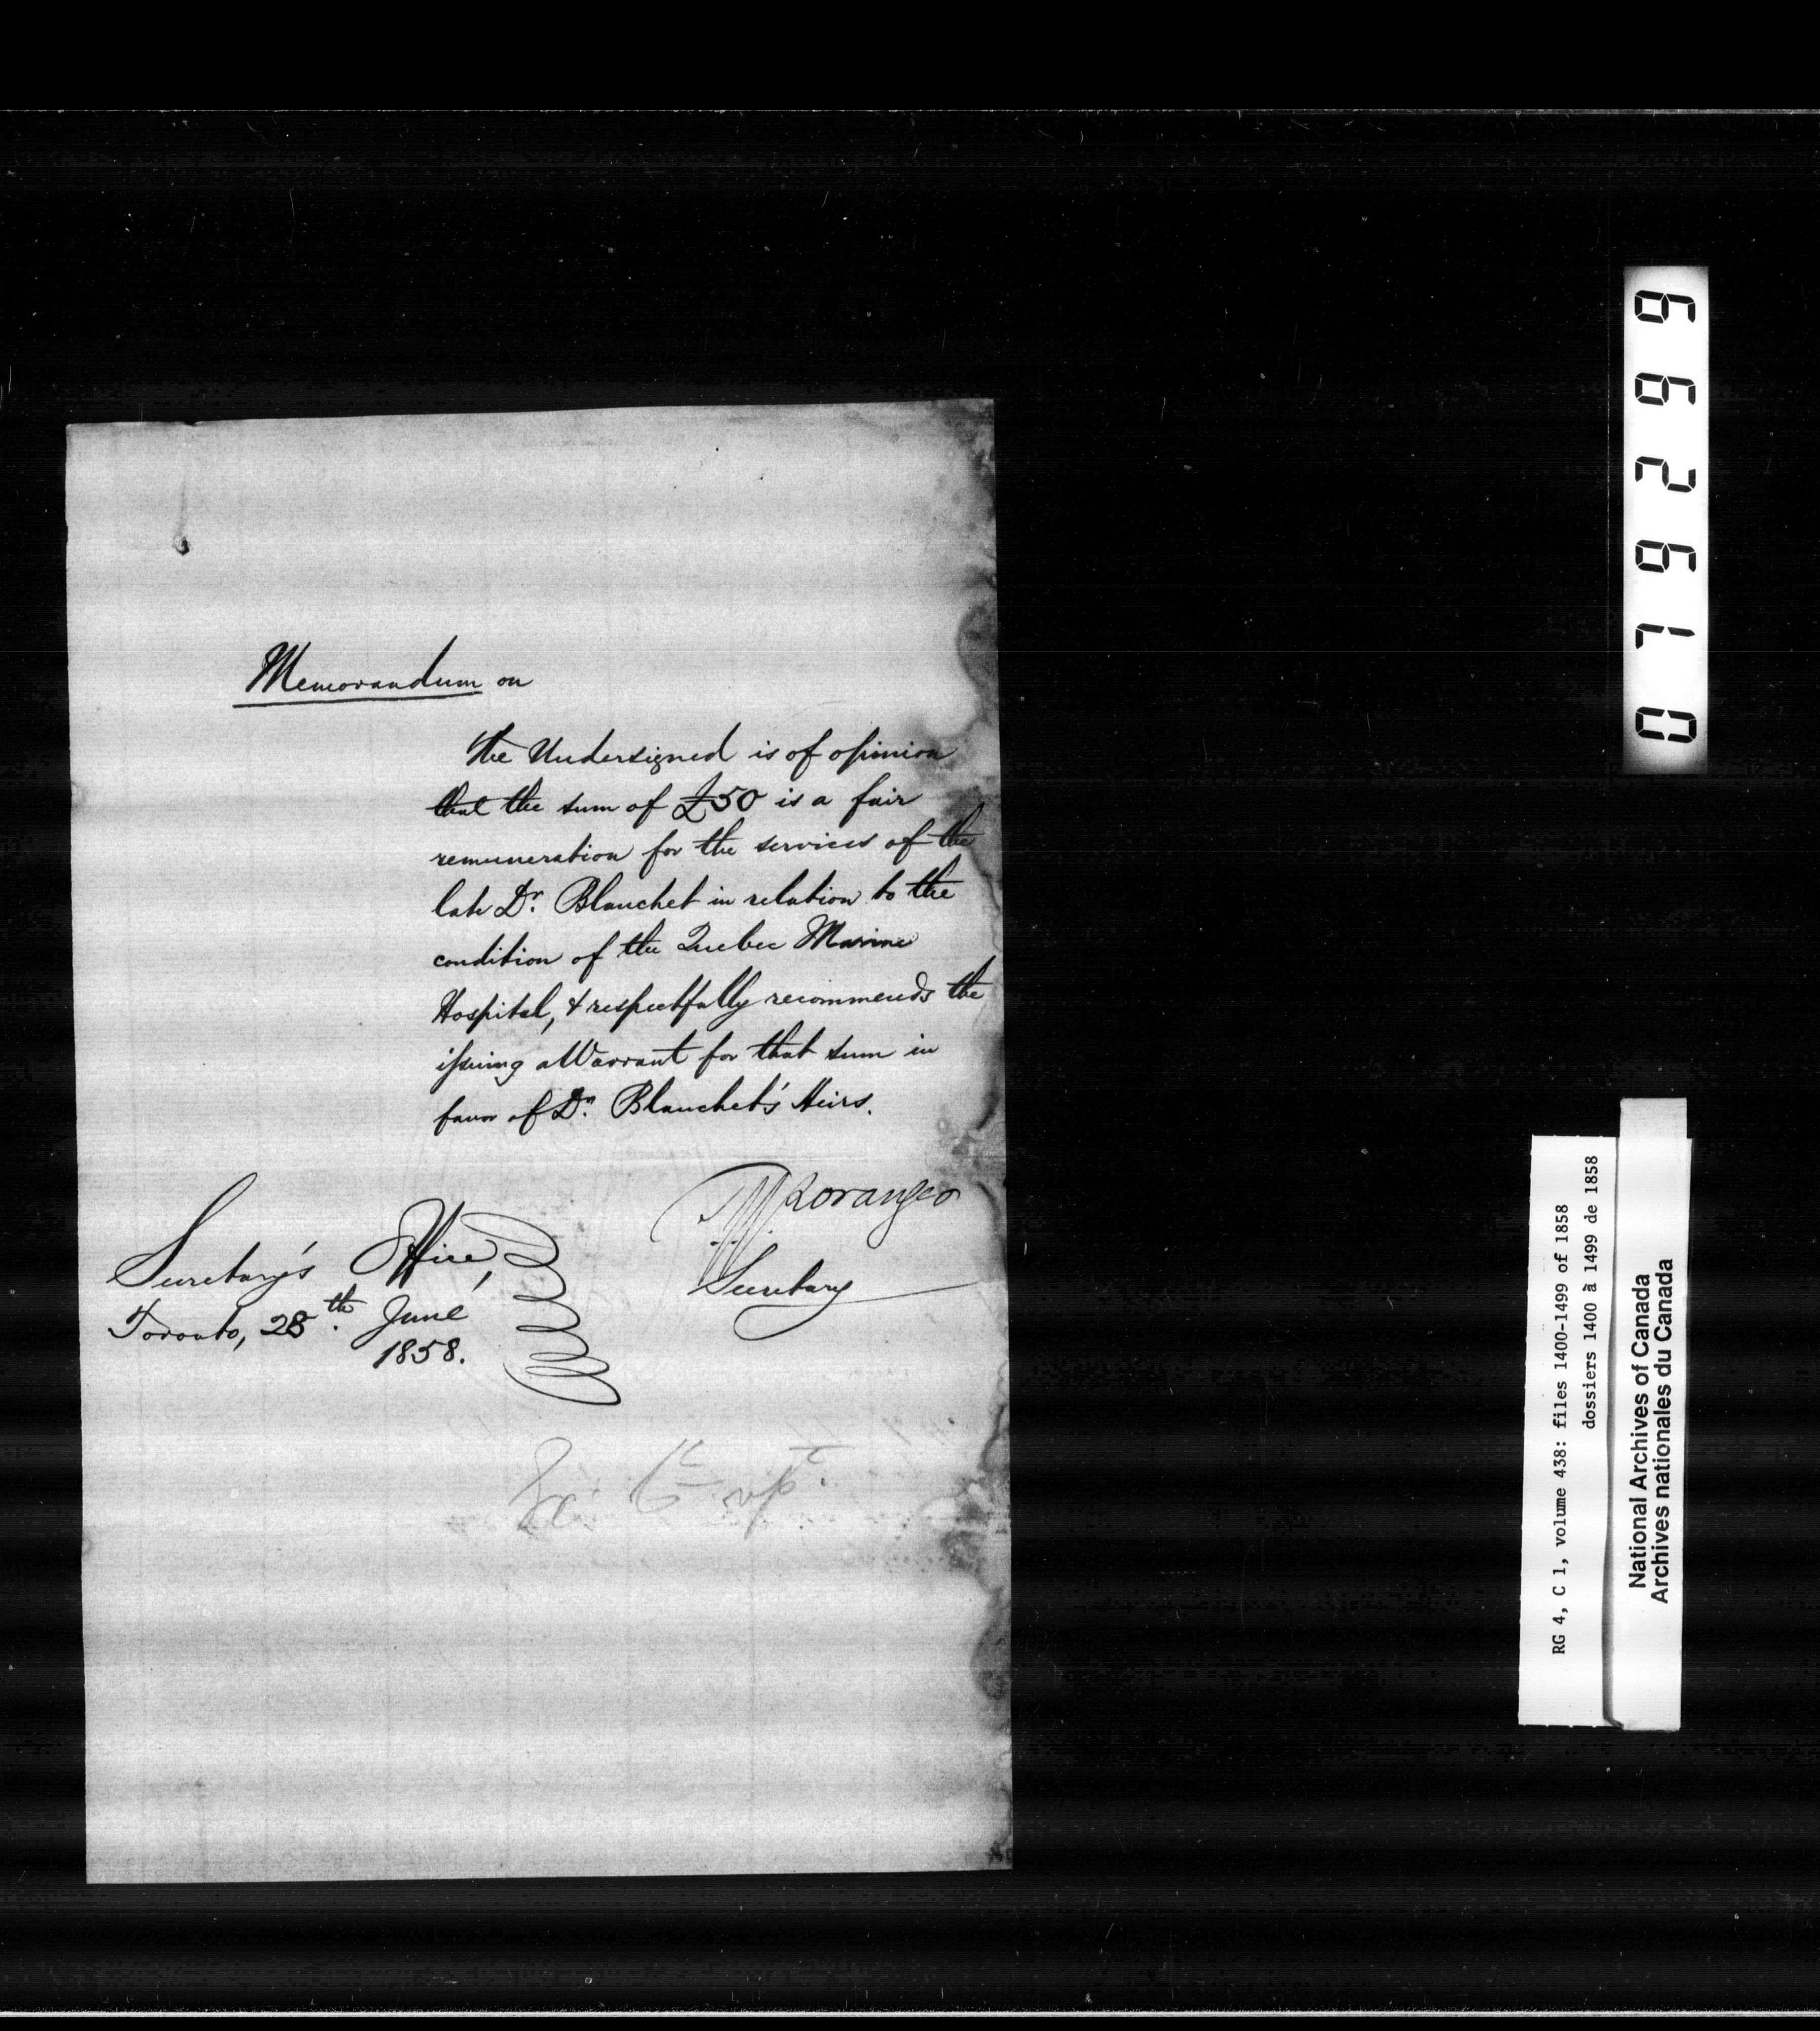 Memorandum on
the Undersigned is of opinion
that the sum of £50 is a fair
remuneration for the services of the
late Dr. Blanchet in relation to the
condition of the Quebec Marine
Hospital, & respectfully recommends the
issuing a Warrant for that sum in
favor of Dr. Blanchet's Heirs.
Loranger
Secretary
Secretary's Office,
Toronto, 28th June
1858.
016299
RG 4, C 1, volume 438: files 1400-1499 of 1858
dossiers 1400 à 1499 de 1858
National Archives of Canada
Archives nationales du Canada